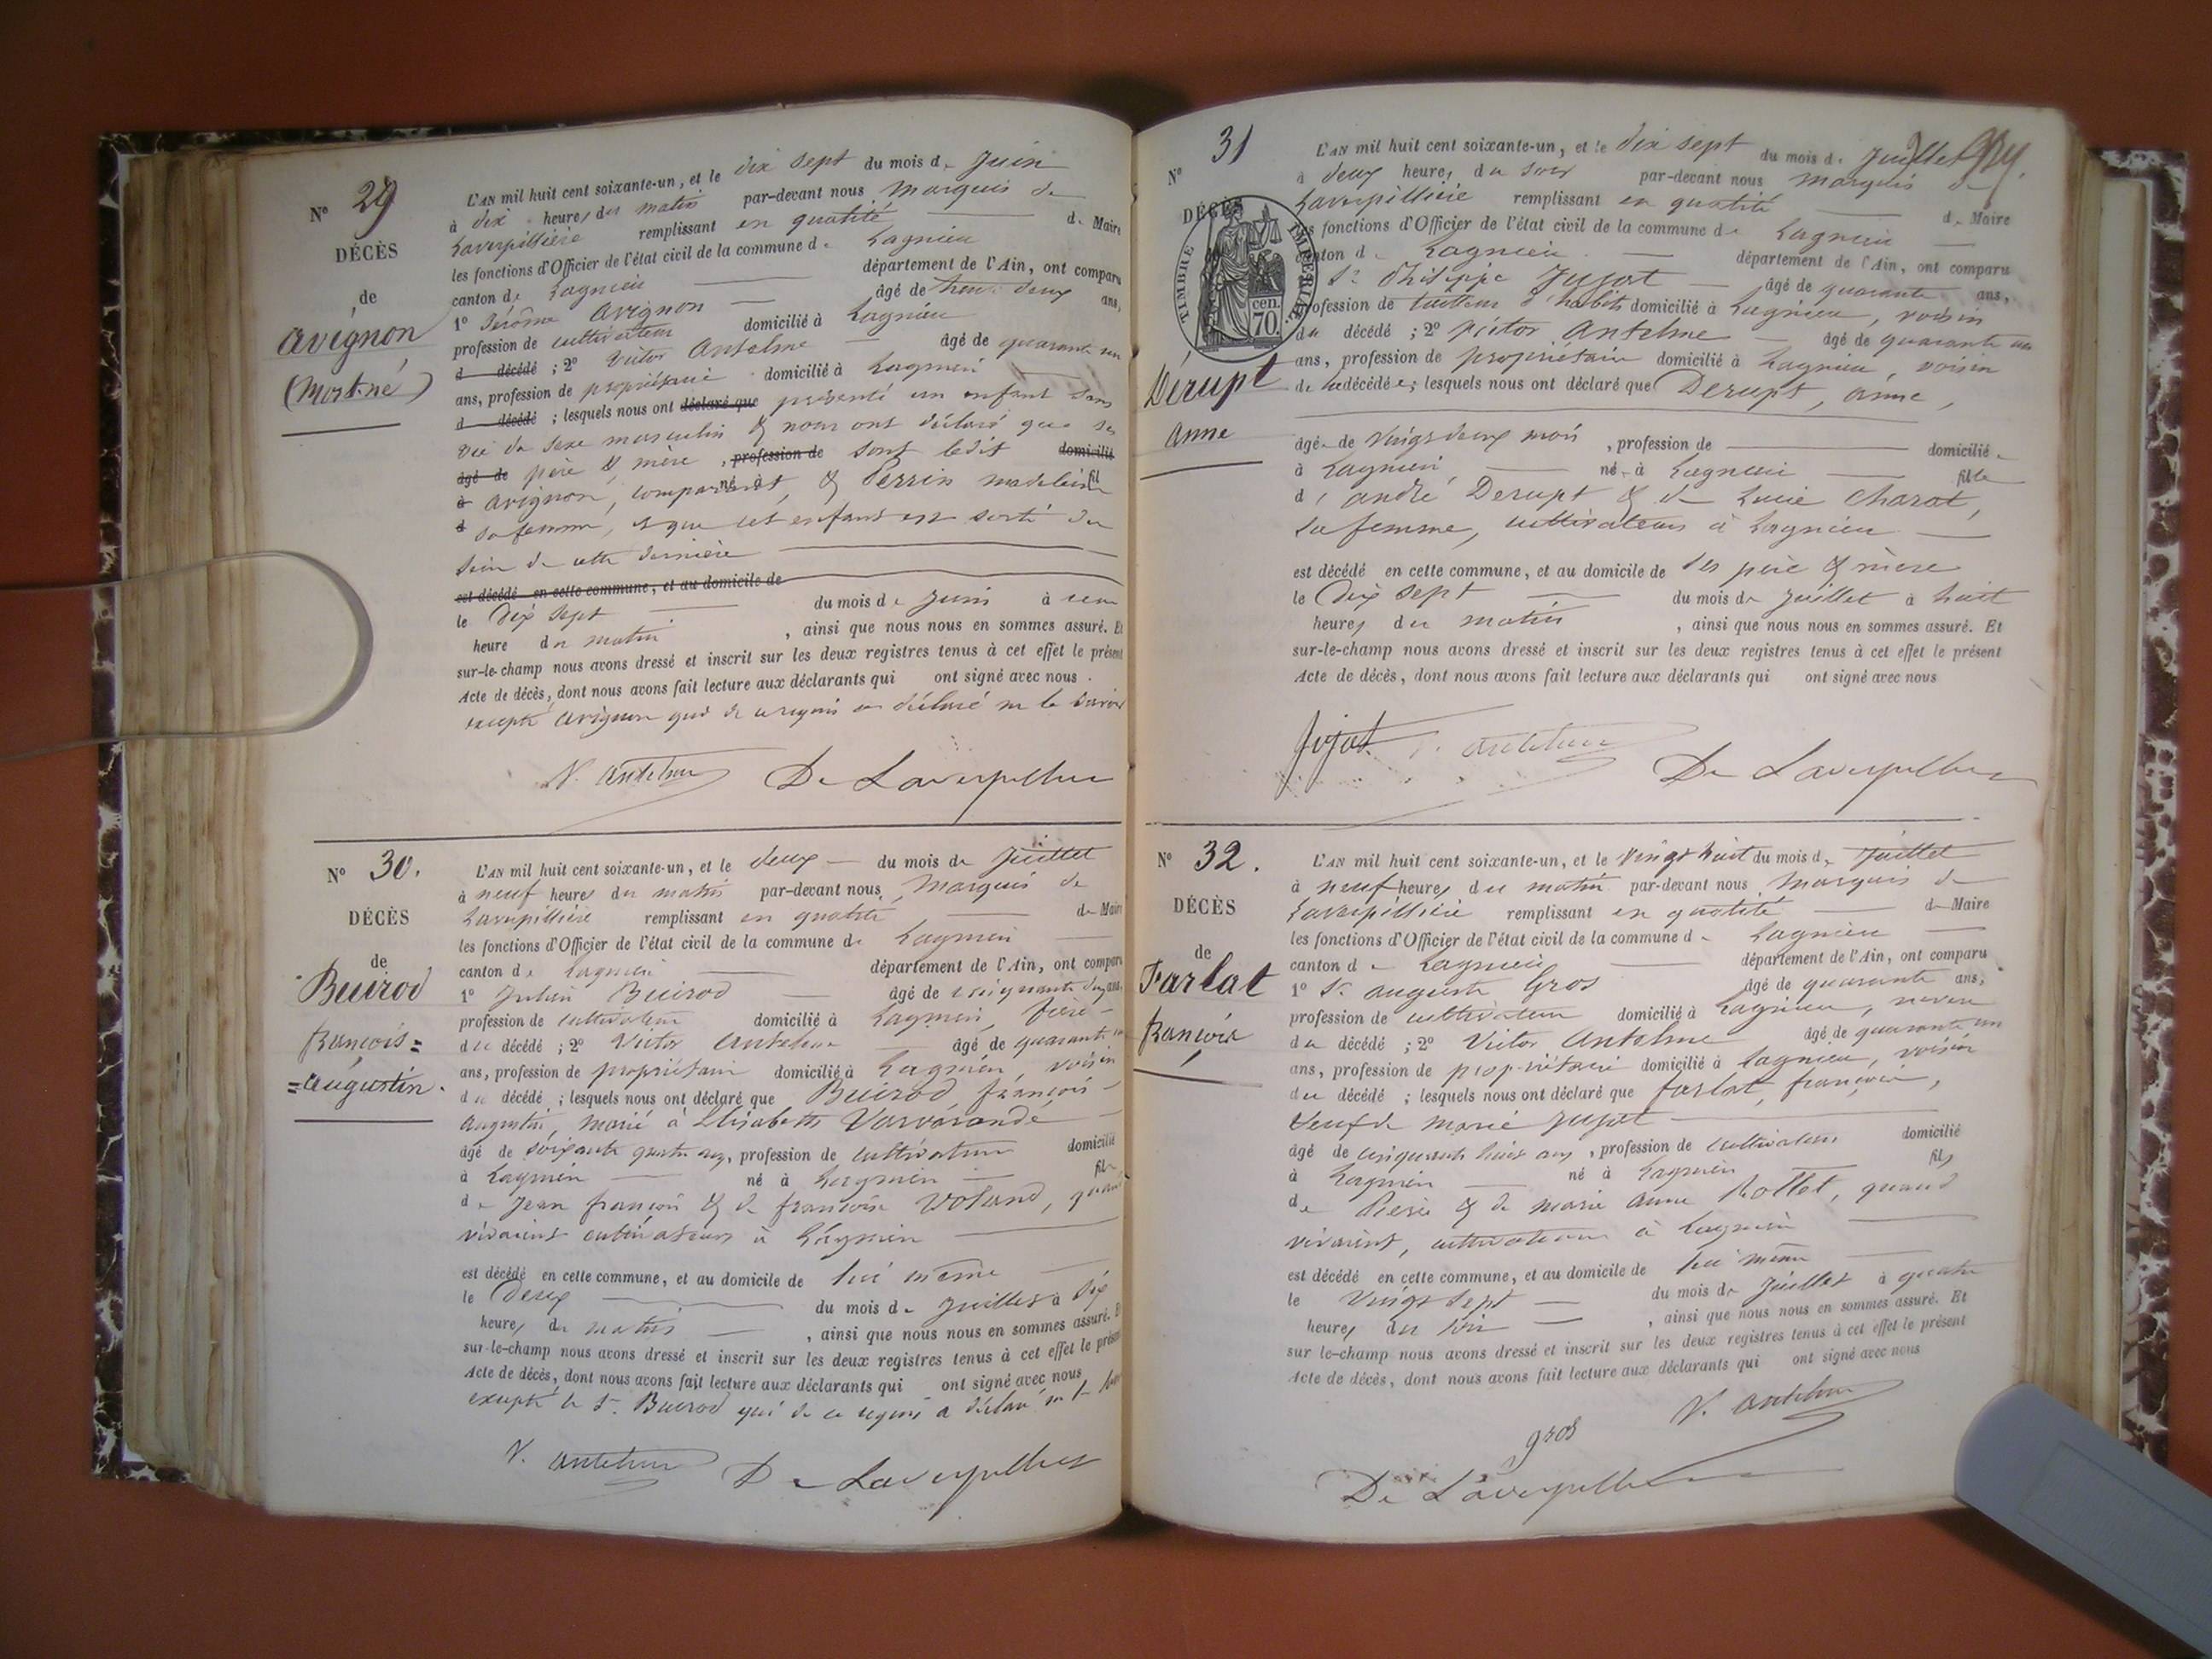 N° 29
DÉCÈS
de
Avignon
(Mort-né)
L'AN mil huit cent soixante-un, et le dix sept du mois de Juin
à dix heures du matin par-devant nous Marquis de
Laverpillière remplissant en qualité de Maire
les fonctions d'Officier de l'état civil de la commune de Lagnieu
canton de Lagnieu département de l'Ain, ont comparu
1° Jérôme Avignon âgé de trente deux ans,
profession de cultivateur domicilié à Lagnieu
d décédé ; 2° Victor Antelme âgé de quarante un
ans, profession de propriétaire domicilié à Lagnieu
d décédé ; lesquels nous ont déclaré que présenté un enfant sans
vie du sexe masculin & nous ont déclaré que ses
âgé de père & mère , profession de sont ledit domicilié
à Avignon, comparant, né à & Perrin Madeleine fil
d sa femme, et que cet enfant est sorti du
sein de cette dernière
est décédé en cette commune, et au domicile de
le Dix sept du mois de Juin à
heure du matin , ainsi que nous nous en sommes assuré. Et
sur-le-champ nous avons dressé et inscrit sur les deux registres tenus à cet effet le présent
Acte de décès, dont nous avons fait lecture aux déclarants qui ont signé avec nous.
excepté Avignon qui de ce requis a déclaré ne le savoir
V. Antelme De Laverpillière
N° 30.
DÉCÈS
de
Buirod
François=
=Augustin.
L'AN mil huit cent soixante-un, et le deux du mois de Juillet
à neuf heures du matin par-devant nous, Marquis de
Laverpillière remplissant en qualité de Maire
les fonctions d'Officier de l'état civil de la commune de Lagnieu
canton de Lagnieu département de l'Ain, ont comparu
1° Julien Buirod âgé de cinquante ans,
profession de cultivateur domicilié à Lagnieu, frère
du décédé ; 2° Victor Antelme âgé de quarante un
ans, profession de propriétaire domicilié à Lagnieu, voisin
du décédé ; lesquels nous ont déclaré que Buirod, françois
Augustin, marié à Elisabeth Varvarande
âgé de soixante quatre ans, profession de cultivateur domicilié
à Lagnieu né à Lagnieu fils
de Jean françois & de françoise Voland, quand
vivaient cultivateurs à Lagnieu
est décédé en cette commune, et au domicile de lui même
le Deux du mois de Juillet à six
heures du matin , ainsi que nous nous en sommes assuré. Et
sur-le-champ nous avons dressé et inscrit sur les deux registres tenus à cet effet le présent
Acte de décès, dont nous avons fait lecture aux déclarants qui ont signé avec nous
excepté le Sr. Buirod qui de ce requis a déclaré ne le savoir
V. Antelme De Laverpillière
N° 31
DÉCÈS
TIMBRE IMPÉRIAL
70 cen.
Dérupt
Anne
L'AN mil huit cent soixante-un, et le dix sept du mois de Juillet
à deux heures du soir par-devant nous Marquis de
Laverpillière remplissant en qualité de Maire
les fonctions d'Officier de l'état civil de la commune de Lagnieu
canton de Lagnieu département de l'Ain, ont comparu
1° Philippe Jujat âgé de quarante ans,
profession de tailleur d'habits domicilié à Lagnieu, voisin
du décédé ; 2° Victor Antelme âgé de quarante un
ans, profession de propriétaire domicilié à Lagnieu, voisin
de la décédée ; lesquels nous ont déclaré que Derupt, anne,
âgée de vingt deux mois , profession de domiciliée
à Lagnieu née à Lagnieu fille
d'andré Derupt & de Lucie Charat,
sa femme, cultivateurs à Lagnieu
est décédé en cette commune, et au domicile de ses père & mère
le Dix sept du mois de Juillet à huit
heures du matin , ainsi que nous nous en sommes assuré. Et
sur-le-champ nous avons dressé et inscrit sur les deux registres tenus à cet effet le présent
Acte de décès, dont nous avons fait lecture aux déclarants qui ont signé avec nous
Jujat V. Antelme De Laverpillière
N° 32.
DÉCÈS
de
Farlat
François
L'AN mil huit cent soixante-un, et le vingt huit du mois de Juillet
à neuf heures du matin par-devant nous Marquis de
Laverpillière remplissant en qualité de Maire
les fonctions d'Officier de l'état civil de la commune de Lagnieu
canton de Lagnieu département de l'Ain, ont comparu
1° Sr. auguste Gros âgé de quarante ans,
profession de cultivateur domicilié à Lagnieu, neveu
du décédé ; 2° Victor Antelme âgé de quarante un
ans, profession de propriétaire domicilié à Lagnieu, voisin
du décédé ; lesquels nous ont déclaré que farlat, françois,
Veuf de marie Jujat
âgé de cinquante huit ans , profession de cultivateur domicilié
à Lagnieu né à Lagnieu fils
de Pierre & de marie anne Rollet, quand
vivaient, cultivateurs à Lagnieu
est décédé en cette commune, et au domicile de lui même
le Vingt sept du mois de Juillet à quatre
heures du soir , ainsi que nous nous en sommes assuré. Et
sur le-champ nous avons dressé et inscrit sur les deux registres tenus à cet effet le présent
Acte de décès, dont nous avons fait lecture aux déclarants qui ont signé avec nous
gros V. Antelme
De Laverpillière